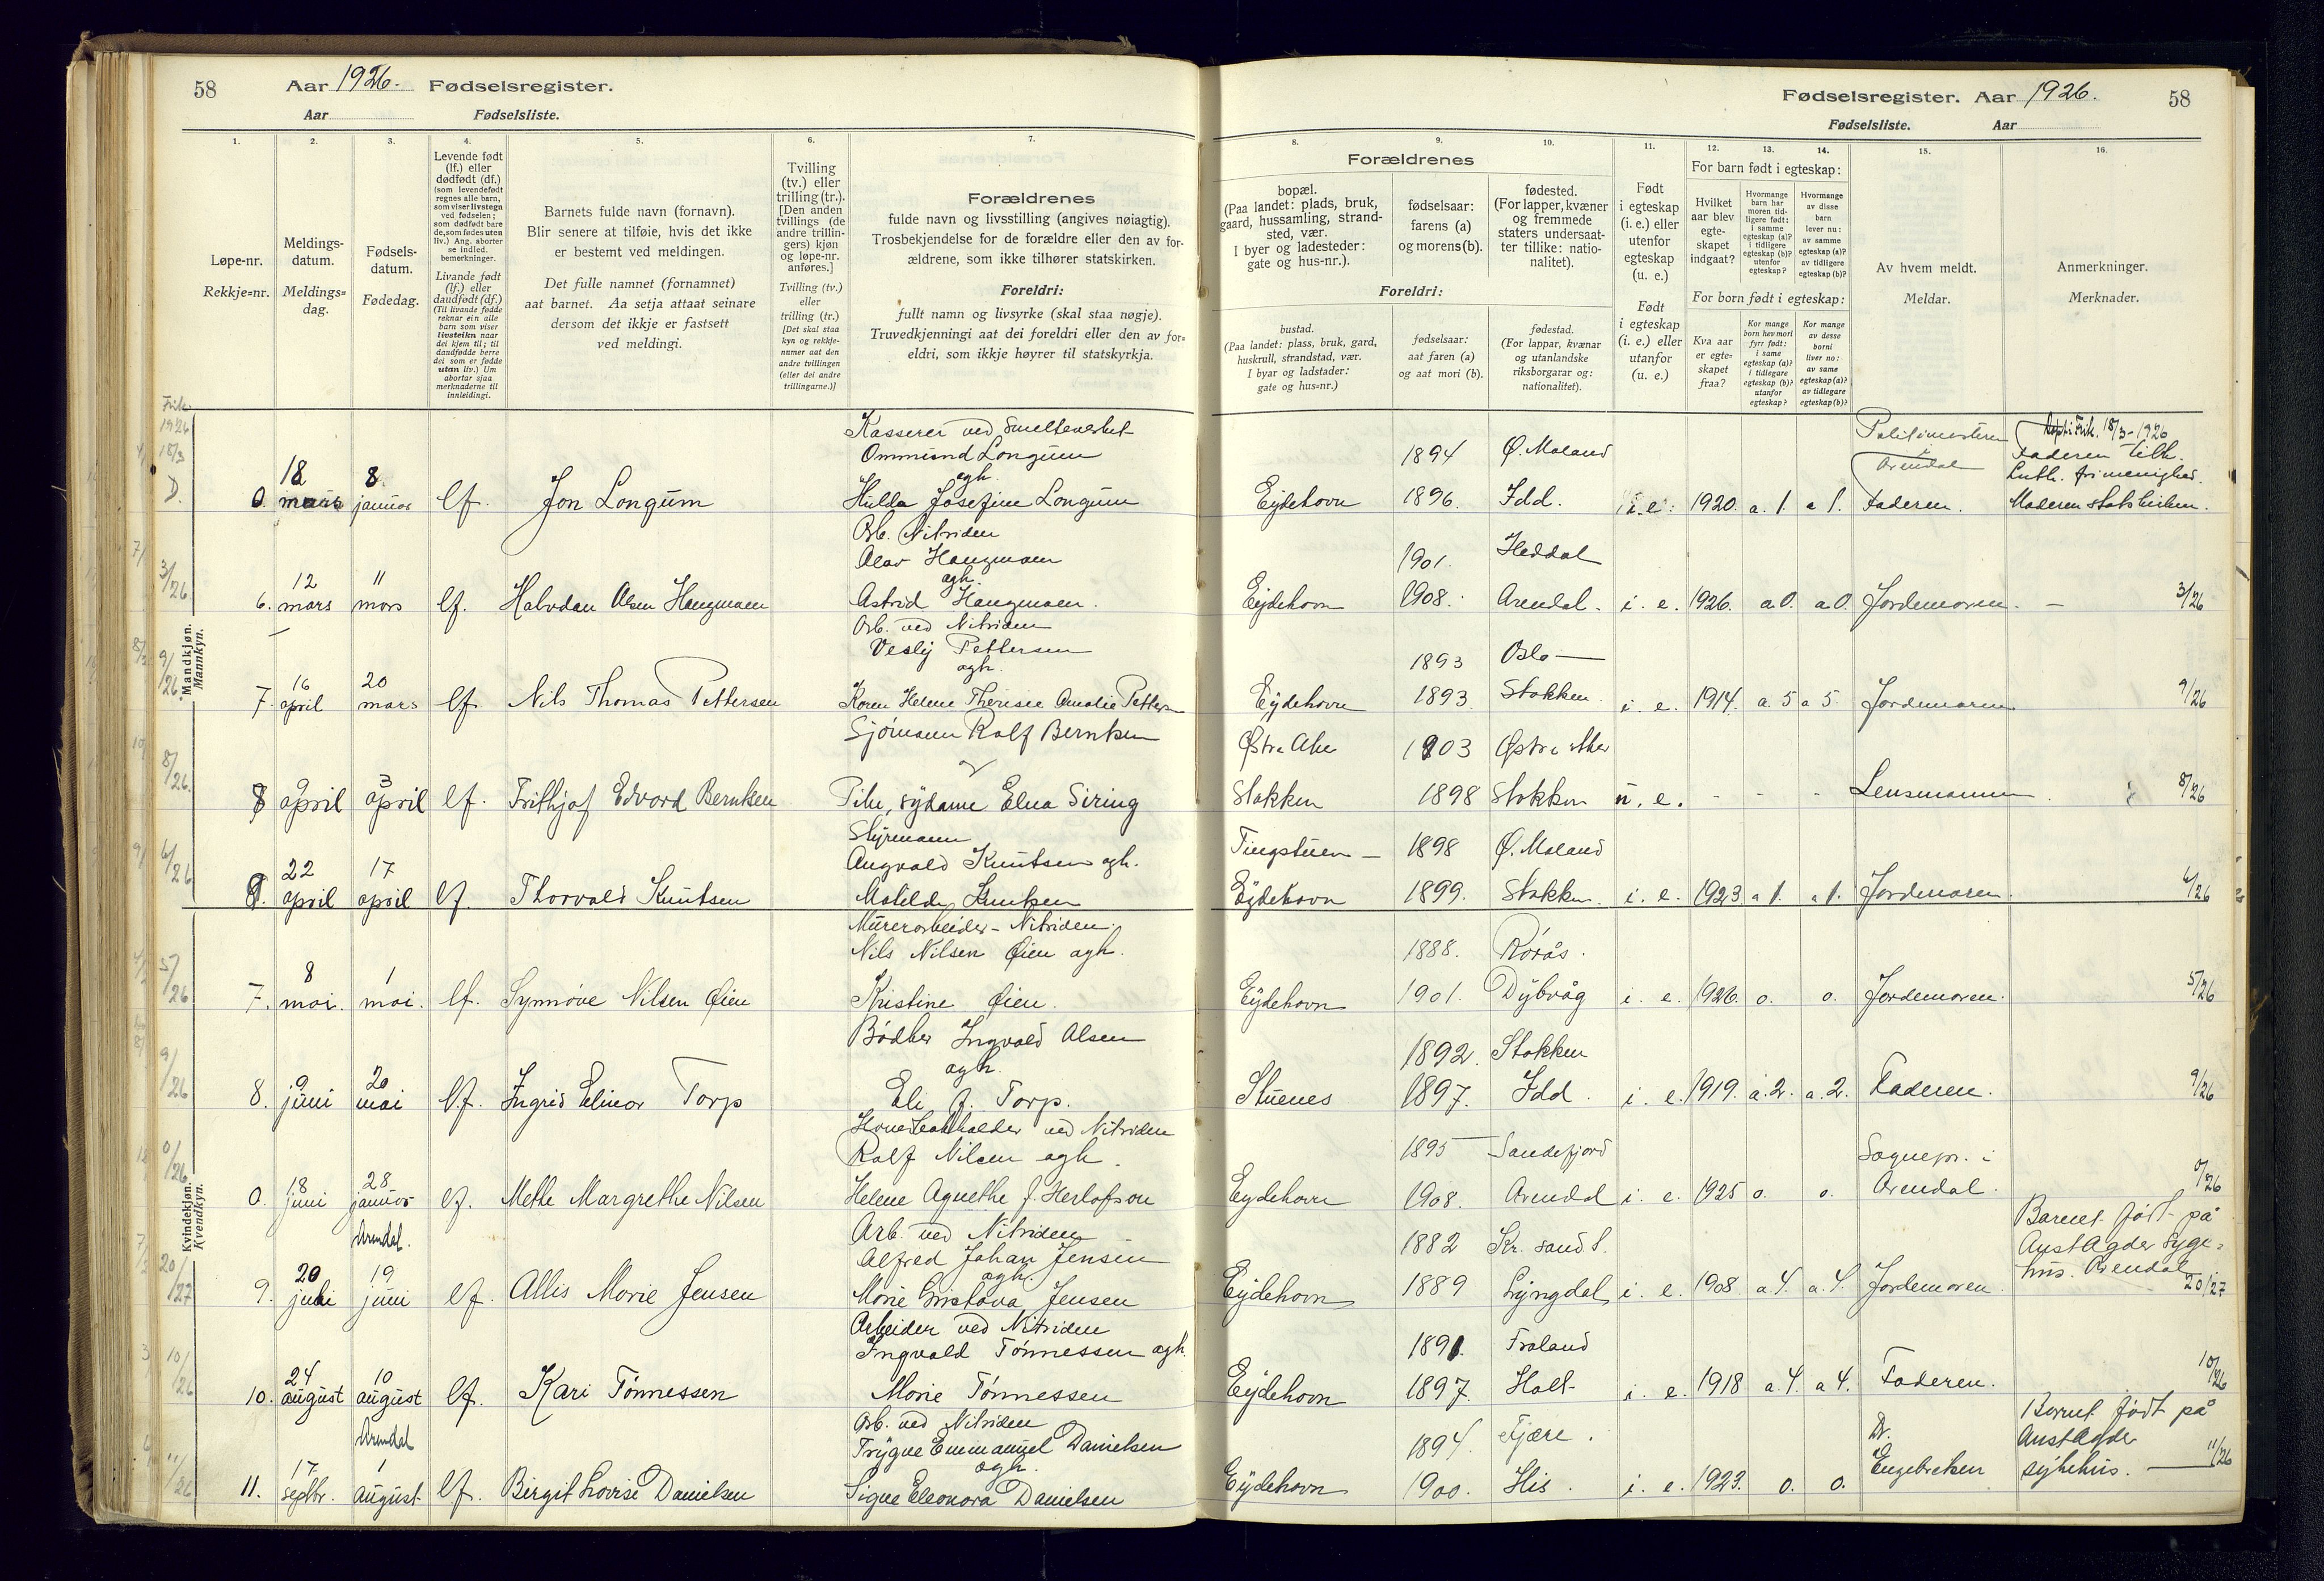 58 Aar 1926. Fødselsregister.
Aar Fødselsliste.
Fødselsregister. Aar 1926. 58
Fødselsliste. Aar
1. 2. 3. 4. 5. 6. 7.
8. 9. 10. 11. 12. 13. 14. 15. 16.
Løpe-nr.
Rekkje=nr.
Meldings-
datum.
Meldings=
dag.
Fødsels-
datum.
Fødedag.
Levende født
(lf.) eller
dødfødt (df.)
(som levendefødt
regnes alle barn,
som viser livstegn
ved fødselen;
som dødfødt bare
de, som fødes uten
liv.) Ang. aborter
se indled.
bemerkninger.
Livande født
(lf.) eller
daudfødt (df.)
(Til livande fødde
reknar ein alle
barn som viser
livsteikn naar
dei kjem til; til
daudfødde berre
dei som er fødde
utan liv.) Um
abortar sjaa
merknaderne til
innleidingi.
Barnets fulde navn (fornavn).
Blir senere at tilføie, hvis det ikke
er bestemt ved meldingen.
Det fulle namnet (fornamnet)
aat barnet. Aa setja attaat seinare
dersom det ikkje er fastsett
ved meldingi.
Tvilling
(tv.) eller
trilling (tr.).
[Den anden
tvillings (de
andre trillin-
gers) kjøn
og løpe-nr.
anføres.]
Tvilling (tv.)
eller
trilling (tr.)
[Det skal staa
kyn og rekkje-
numer aat den
andre tvillingen
(eller dei andre
trillingarne.)]
Forældrenes
fulde navn og livsstilling (angives nøiagtig).
Trosbekjendelse for de forældre eller den av for-
ældrene, som ikke tilhører statskirken.
Foreldri:
fullt namn og livsyrke (skal staa nøgje).
Truvedkjenningi aat dei foreldri eller den av for=
eldri, som ikkje høyrer til statskyrkja.
Forældrenes
bopæl.
(Paa landet: plads, bruk,
gaard, hussamling, strand-
sted, vær.
I byer og ladesteder:
gate og hus-nr.).
fødselsaar:
farens (a)
og morens (b).
fødested.
(For lapper, kvæner
og fremmede
staters undersaat-
ter tillike: natio-
nalitet).
Foreldri:
bustad.
(Paa landet: plass, bruk, gard,
huskrull, strandstad, vær.
I byar og ladstader:
gate og hus=nr.)
fødselsaar:
aat faren (a)
og aat mori (b).
fødestad.
(For lappar, kvænar
og utanlandske
riksborgarar og:
nationalitet).
Født
i egteskap
(i. e.) eller
utenfor
egteskap
(u. e.)
Født
i egteskap
(i. e.) eller
utanfor
(u. e.)
For barn født i egteskap:
Hvilket
aar blev
egte-
skapet
indgaat?
Hvormange
barn har
moren tid-
ligere født:
i samme
egteskap (a)?
i tidligere
egteskap (b)?
utenfor
egteskap?
Hvormange
av disse
barn
lever nu:
av samme
egteskap (a)?
av tidligere
egteskap (b)?
For born født i egteskap:
Kva aar
er egte=
skapet
fraa?
Kor mange
born hev mori
fyrr født:
i same
egteskap (a)?
i tidlegare
egteskap (b)?
utanfor
egteskap?
Kor mange
av desse
borni
liver no:
av same
egteskap (a)?
av tidlegare
egteskap (b)?
Av hvem meldt.
Meldar.
Anmerkninger.
Merknader.
Mandkjøn.
Mannkyn.
Kasserer ved Smelteverket
Ommund Longum 1894 Ø. Moland Politimesteren
agh. i Arendal 18/3-1926
Faderen tilh.
Luth. frimenighed.
0. 18 mars 8 januar lf. Jon Longum Hulda Josefine Longum Eydehavn 1896. Idd. i. e. 1920. a. 1. a 1. Faderen. Moderen statskirken.
Arb. Nitriden
Olav Haugmoen 1901. Heddal
agh.
6. 12 mars 11 mars lf. Halvdan Olsen Haugmoen Astrid Haugmoen. Eydehavn 1908. Arendal. i. e. 1926. a. 0. a. 0. Jordemoren. 3/26
Arb. ved Nitriden
Vesly Pettersen 1893 Oslo
agh.
7. 16 april 20 mars lf. Nils Thomas Pettersen Karen Helene Therese Amalie Pettersen Eydehavn 1893. Stokken. i. e. 1914. a. 5 a 5. Jordemoren 9/26
Sjømann Rolf Berntsen Østre Aker 1903 Østre Aker
8 9 april 3 april lf. Frithjof Edvard Berntsen Pike, sydame Elna Siring Stokken 1898 Stokken u. e. - - - Lensmannen. 8/26
Styrmann
Angvald Knutsen agh. Tingstuen 1898 Ø. Moland
22 april 17 april lf. Thorvald Knutsen Matilde Knutsen Eydehavn 1899. Stokken. i. e. 1923. a 1. a 1. Jordemoren. 6/26
Kvindekjøn.
Kvendkyn.
Murerarbeider - Nitriden.
Nils Nilsen Øien agh. 1888. Rørås.
7. 8 mai. 1 mai. lf. Synnøve Nilsen Øien Kristine Øien. Eydehavn 1901. Dybvåg i. e. 1926. o. o. Jordemoren. 5/26
Bødker Ingvald Olsen 1892. Stokken
agh.
8. 9 juni 20 mai lf. Ingrid Elinor Torp Eli f. Torp. Stuenes 1897. Idd. i. e. 1919. a. 2. a. 2. Faderen. 9/26
ved Nitriden
Rolf Nilsen agh. 1895 Sandefjord Sognepr. i
0. 18 juni 28 januar lf. Methe Margrethe Nilsen Helene Agnethe f. Herlofson Eydehavn 1908. Arendal i. e. 1925 o. o. Arendal. 0/26
Arendal. Arb. ved Nitriden
Alfred Johan Jensen 1882 Kr. sand S. Barnet født på
agh. AustAgder syge-
9. 20 juli 19 juni lf. Allis Marie Jensen Marie Gustava Jensen Eydehavn 1889 Lyngdal i. e. 1908. a 4. a. 4. Jordemoren. hus. Arendal 20/27
Arbeider ved Nitriden
Ingvald Tønnessen agh. 1891. Froland
10. 24 august 10 august lf. Kari Tønnessen Marie Tønnessen Eydehavn 1897. Holt i. e. 1918 a. 4. a 4. Faderen. 10/26
Arendal Arb. ved Nitriden
Trygve Emmanuel Danielsen 1894. Fjære. Dr. Barnet født på
agh. AustAgder
11. 17 septbr. 1 august lf. Birgit Lovise Danielsen Signe Eleonora Danielsen Eydehavn 1900. His. i. e. 1923. o. o. Engebretsen sykehus. 11/26